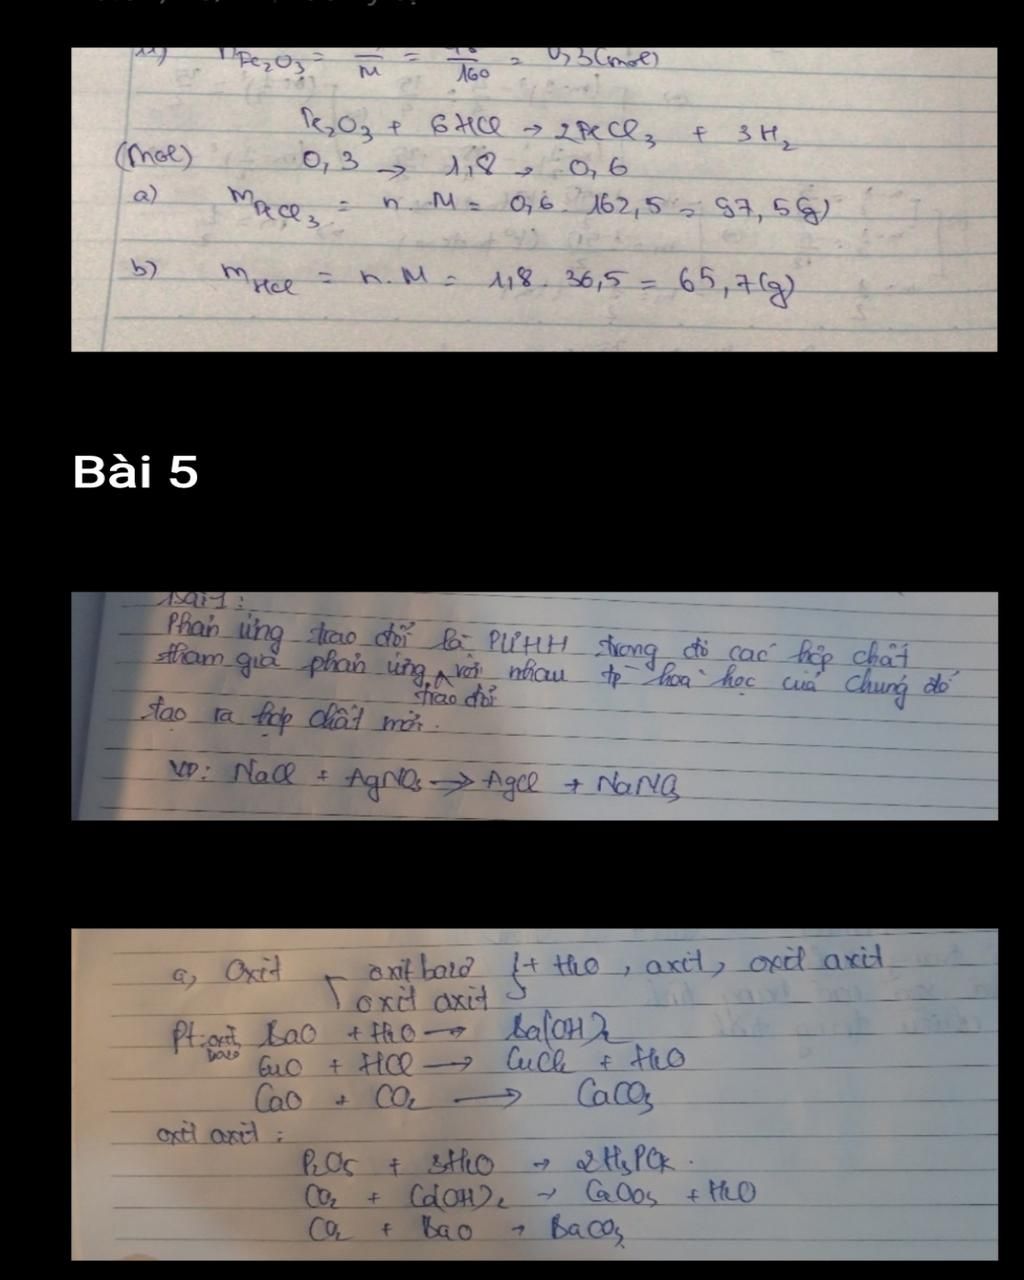 n Fe₂O₃ = /M = /160 = 0,3 (mol)
Fe₂O₃ + 6HCl → 2FeCl₃ + 3H₂
(mol) 0,3 → 1,8 → 0,6
a) mFeCl₃ = n.M = 0,6.162,5 = 97,5(g)
b) mHCl = n.M = 1,8.36,5 = 65,7(g)
Bài 5
Bài 1:
Phản ứng trao đổi là PƯHH trong đó các hợp chất
tham gia phản ứng trao đổi với nhau tp hoá học của chúng để
tạo ra hợp chất mới.
VD: NaCl + AgNO₃ → AgCl + NaNO₃
a, Oxit oxit bazơ } + H₂O, axit, oxit axit
oxit axit
Pt: oxit bazơ BaO + H₂O → Ba(OH)₂
CuO + HCl → CuCl₂ + H₂O
CaO + CO₂ → CaCO₃
oxit axit:
P₂O₅ + 3H₂O → 2H₃PO₄.
CO₂ + Ca(OH)₂ → CaCO₃ + H₂O
CO₂ + BaO → BaCO₃